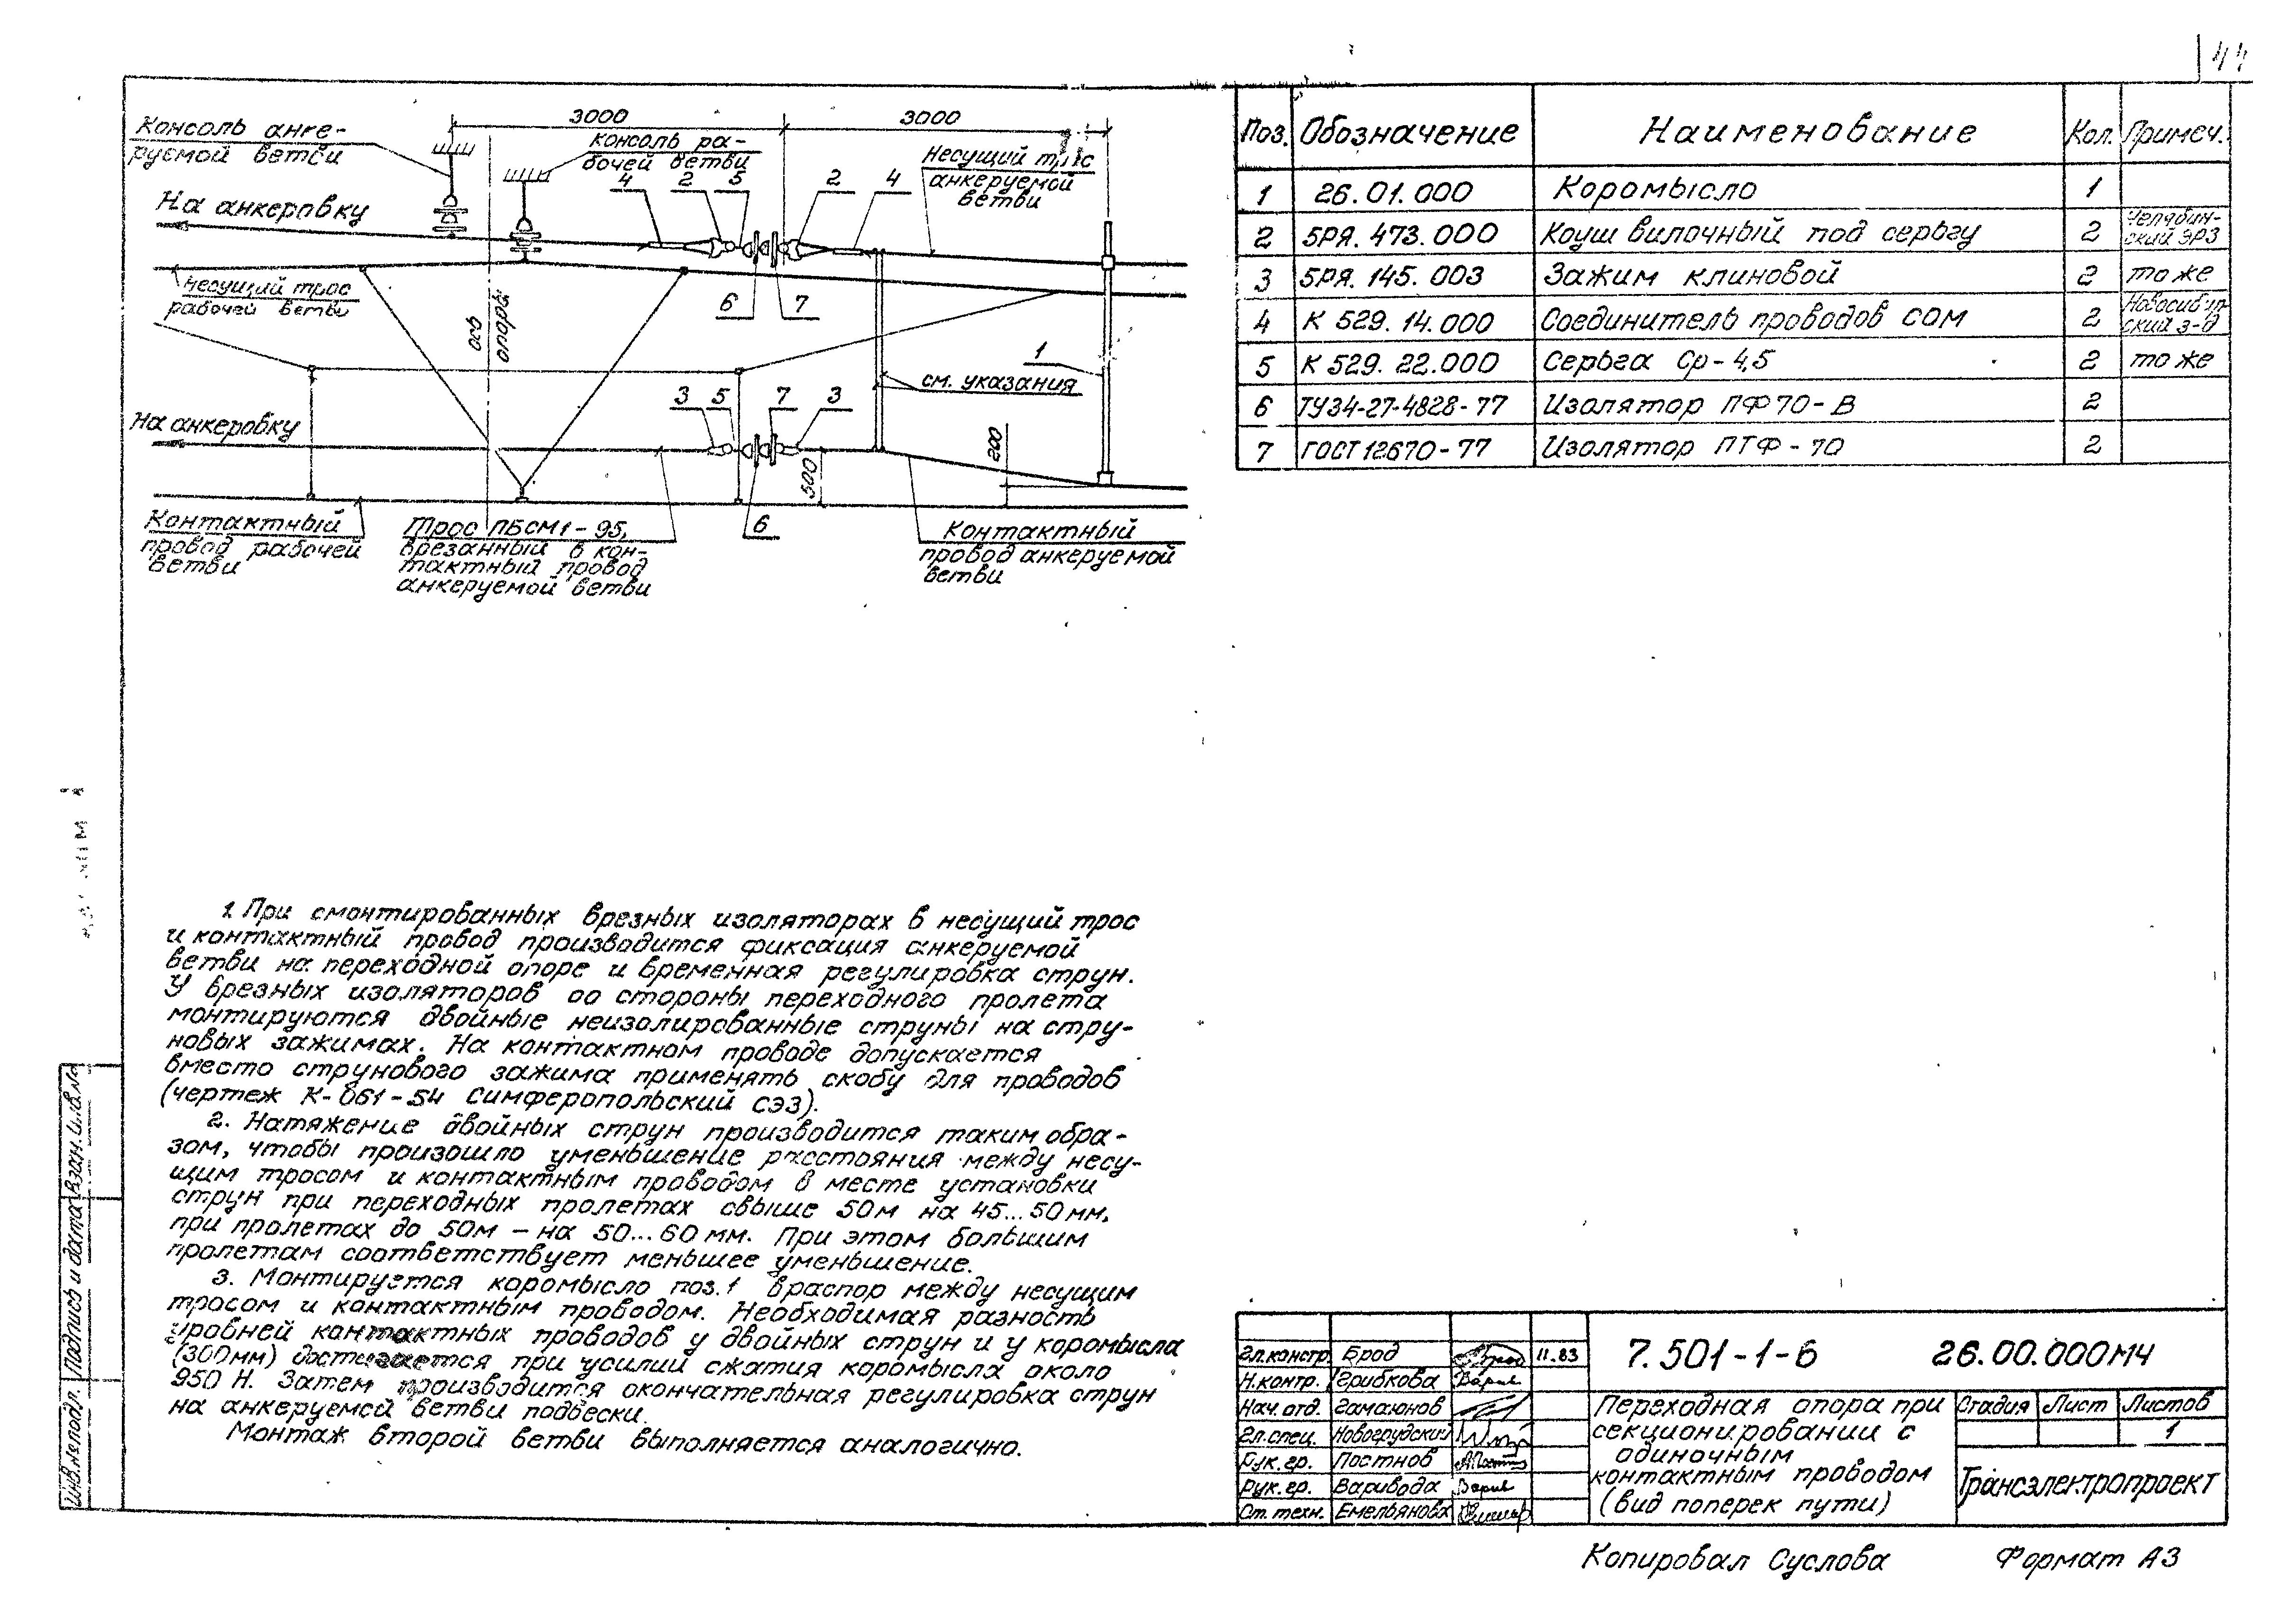 44
3000
3000
Консоль анке-
руемой ветви
консоль ра-
бочей ветви
Несущий трос
анкеруемой
ветви
4
2
5
2
4
На анкеровку
несущий трос
рабочей ветви
ось
опоры
6
7
1
см. указания
3
5
7
3
На анкеровку
500
200
6
Контактный
провод рабочей
ветви
Трос ПБСМ1-95,
врезанный в кон-
тактный провод
анкеруемой ветви
Контактный
провод анкеруемой
ветви
Поз. Обозначение Наименование Кол. Примеч.
1 26.01.000 Коромысло 1
2 5РЯ.473.000 Коуш вилочный под сергу 2 Челябин-
ский ЭРЗ
3 5РЯ.145.003 Зажим клиновой 2 то же
4 К 529.14.000 Соединитель проводов СОМ 2 Новосибир-
ский з-д
5 К 529.22.000 Серьга Ср-4,5 2 то же
6 ТУ34-27-4828-77 Изолятор ПФ70-В 2
7 ГОСТ 12670-77 Изолятор ПТФ-70 2
1. При смонтированных врезных изоляторах в несущий трос
и контактный провод производится фиксация анкеруемой
ветви на переходной опоре и временная регулировка струн.
У врезных изоляторов со стороны переходного пролета
монтируются двойные неизолированные струны на стру-
новых зажимах. На контактном проводе допускается
вместо струнового зажима применять скобу для проводов
(чертеж К-061-54 Симферопольский СЭЗ).
2. Натяжение двойных струн производится таким обра-
зом, чтобы произошло уменьшение расстояния между несу-
щим тросом и контактным проводом в месте установки
струн при переходных пролетах свыше 50м на 45...50мм,
при пролетах до 50м - на 50...60 мм. При этом большим
пролетам соответствует меньшее уменьшение.
3. Монтируется коромысло поз.1 враспор между несущим
тросом и контактным проводом. Необходимая разность
уровней контактных проводов у двойных струн и у коромысла
(300мм) достигается при усилии сжатия коромысла около
950 Н. Затем производится окончательная регулировка струн
на анкеруемой ветви подвески.
Монтаж второй ветви выполняется аналогично.
Инв.№ подл. Подпись и дата Взам. инв.№
Гл.констр. Брод 11.83
Н.контр. Грибкова
Нач.отд. Гамаюнов
Гл.спец. Новогрудский
Рук.гр. Постнов
Рук.гр. Варивода
Ст.техн. Емельянова
7.501-1-6 26.00.000МЧ
Переходная опора при
секционировании с
одиночным
контактным проводом
(вид поперек пути)
Стадия Лист Листов
1
Трансэлектропроект
Копировал Суслова Формат А3